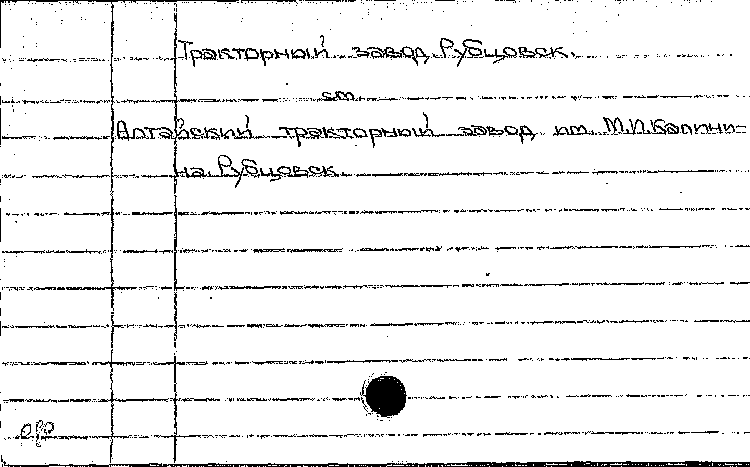 Тракторный завод. Рубцовск.
см.
Алтайский тракторный завод им. М.И.Калини-
на. Рубцовск.